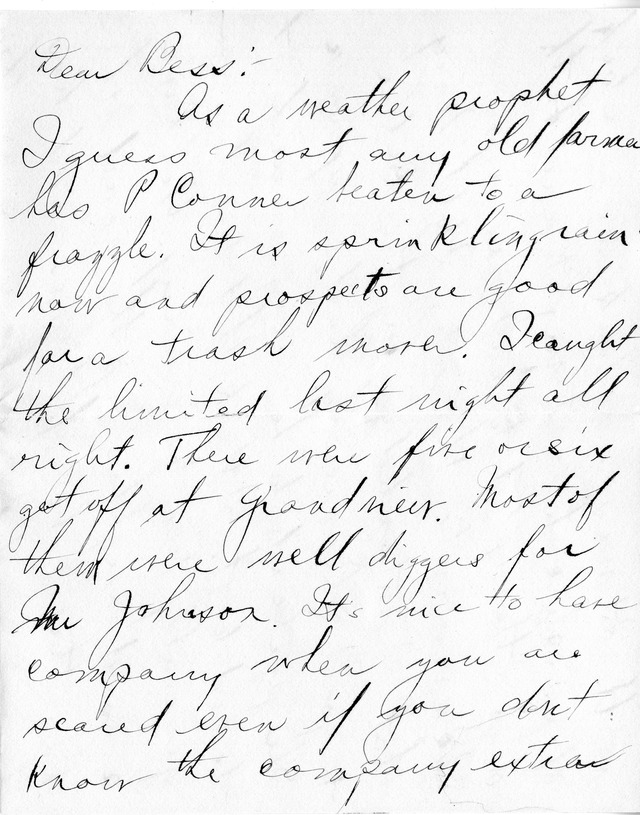 Dear Bess:-
As a weather prophet
I guess most any old farmer
has P Conner beaten to a
frazzle. It is sprinkling rain
now and prospects are good
for a trash mover. I caught
the limited last night all
right. There were five or six
got off at Grandview. Most of
them were well diggers for
Mr Johnson. Its nice to have
company when you are
scared even if you dont
know the company extra